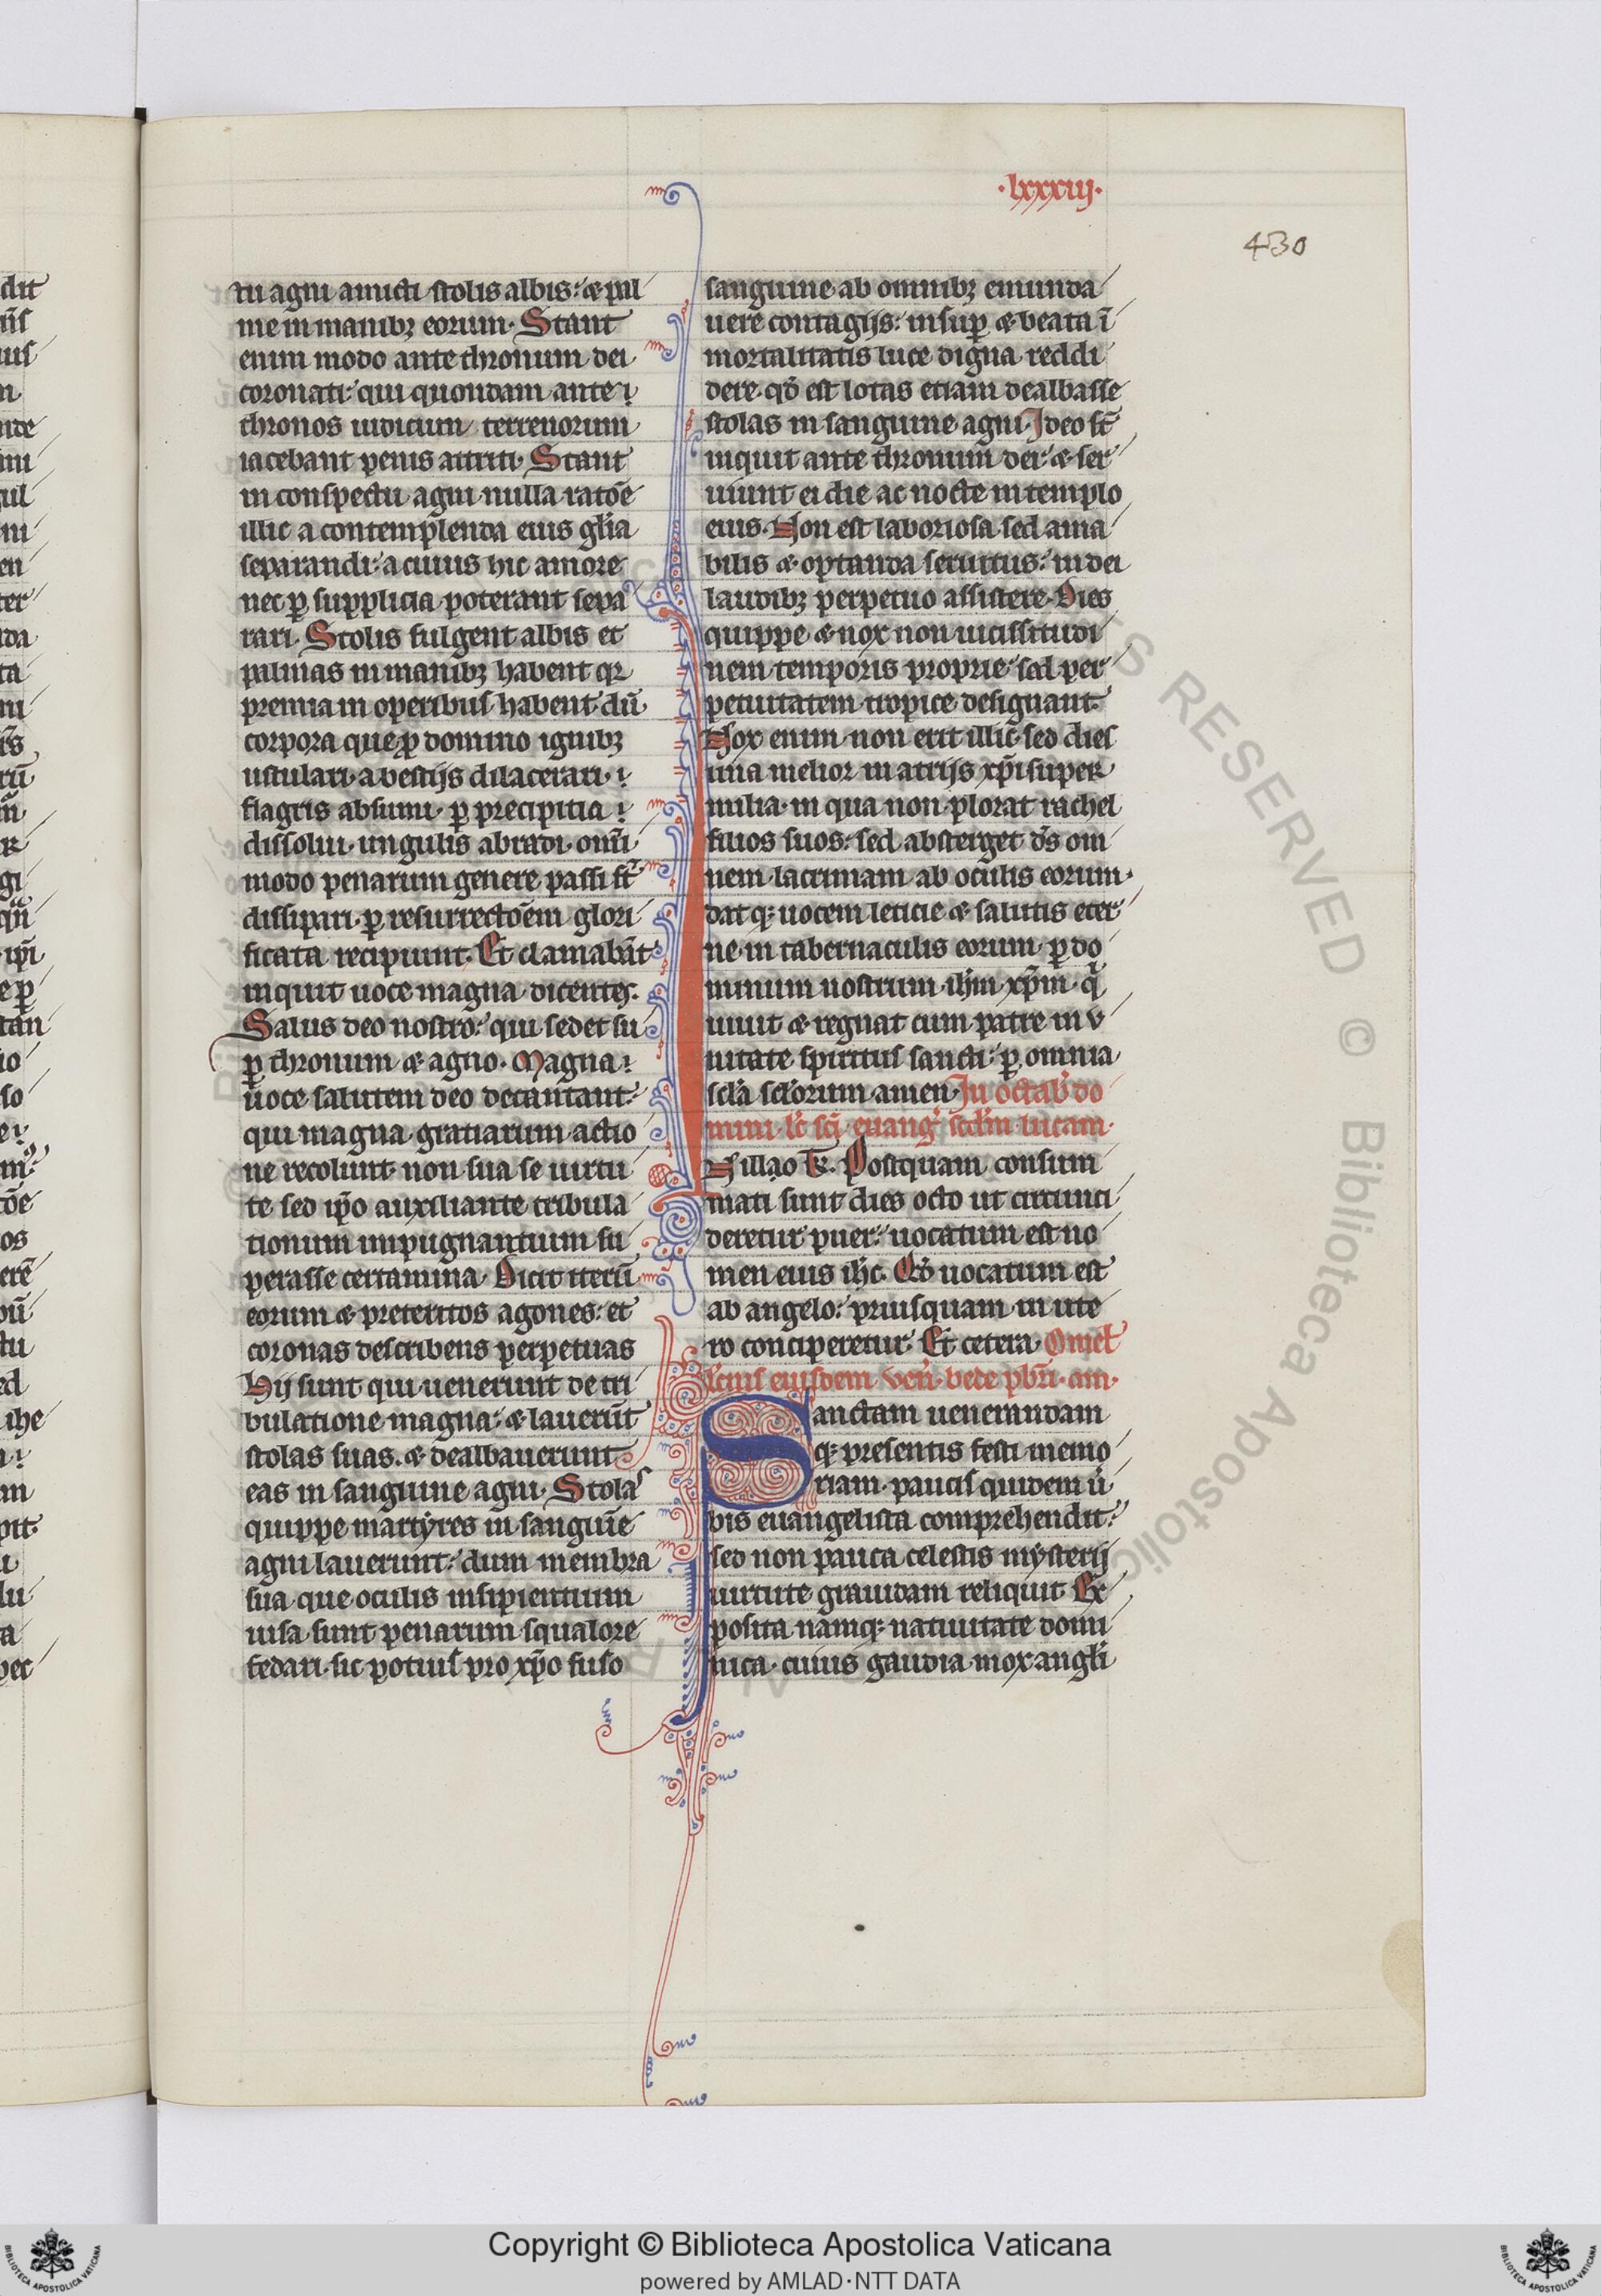 ·lxxxiij·
430
tu agni amicti stolis albis: ⁊ pal
me in manibꝫ eorum. Stant
enim modo ante thronum dei
coronati: qui quondam ante
thronos iudicum terrenorum
iacebant penis attriti. Stant
in conspectu agni nulla ratōe
illic a contemplenda eius gl̄ia
separandi: a cuius hic amore
nec ꝑ supplicia poterant sepa
rari. Stolis fulgent albis et
palmas in manibꝫ habent qꝛ
premia in operibus habent dū
corpora que ꝑ domino ignibꝫ
ustulari. a bestijs dilacerari.
flagris absumi. ꝑ precipitia
dissolui. ungulis abradi. om̄i
modo penarum genere passi st̄
dissipari. ꝑ resurrectōem glori
ficata recipiunt. Et clamabāt
inquit uoce magna dicentes.
Salus deo nostro: qui sedet su
ꝑ thronum ⁊ agno. Magna
uoce salutem deo decantant:
qui magna gratiarum actio
ne recolunt non sua se uirtu
te sed ip̄o auxiliante tribula
tionum impugnantium su
perasse certamina. Dicit iterū
eorum ⁊ preteritos agones: et
coronas describens perpetuas
Hij sunt qui uenerunt de tri
bulatione magna: ⁊ lauerūt
stolas suas. ⁊ dealbauerunt
eas in sanguine agni. Stolas
quippe martyres in sanguīe
agni lauerunt: dum membra
sua que oculis insipientium
uisa sunt penarum squalore
fedari. sic potius pro xp̄o fuso
sanguine ab omnibꝫ emunda
uere contagijs: insuꝑ ⁊ beata ī
mortalitatis luce digna reddi
dere. qd̄ est lotas etiam dealbasse
stolas in sanguine agni. Ideo st̄
inquit ante thronum dei: ⁊ ser
uiunt ei die ac nocte in templo
eius. Non est laboriosa sed ama
bilis ⁊ optanda seruitus: in dei
laudibꝫ perpetuo assistere. Dies
quippe ⁊ nox non uicissitudi
nem temporis proprie: sed per
petuitatem tropice designant.
Nox enim non erit illic. sed dies
una melior in atrijs xp̄i super
milia. in qua non plorat rachel
filios suos: sed absterget ds̄ om
nem lacrimam ab oculis eorum.
dat qꝫ uocem leticie ⁊ salutis eter
ne in tabernaculis eorum. ꝑ do
minum nostrum ih̄m xp̄m. qͥ
uiuit ⁊ regnat cum patre in v
nitate spiritus sancti: ꝑ omnia
scl̄a scl̄orum amen. In octab' do
mini. lc̄ sc̄i euang' scd̄m lucam.
N illa̧o t̄r. Postquam consum
mati sunt dies octo ut circunci
deretur puer: uocatum est no
men eius ih̄c. Qd̄ uocatum est
ab angelo: priusquam in ute
ro conciperetur. Et cetera. Omel'
eiusdem ven̄. bede pb̄ri. am.
Sanctam uenerandam
qꝫ presentis festi memo
riam. paucis quidem ū
bis euangelista comprehendit:
sed non pauca celestis mysterij
uirtute grauidam reliquit. Ex
posita namqꝫ natiuitate domi
nica. cuius gaudia mox angl̄i
Copyright © Biblioteca Apostolica Vaticana
powered by AMLAD·NTT DATA